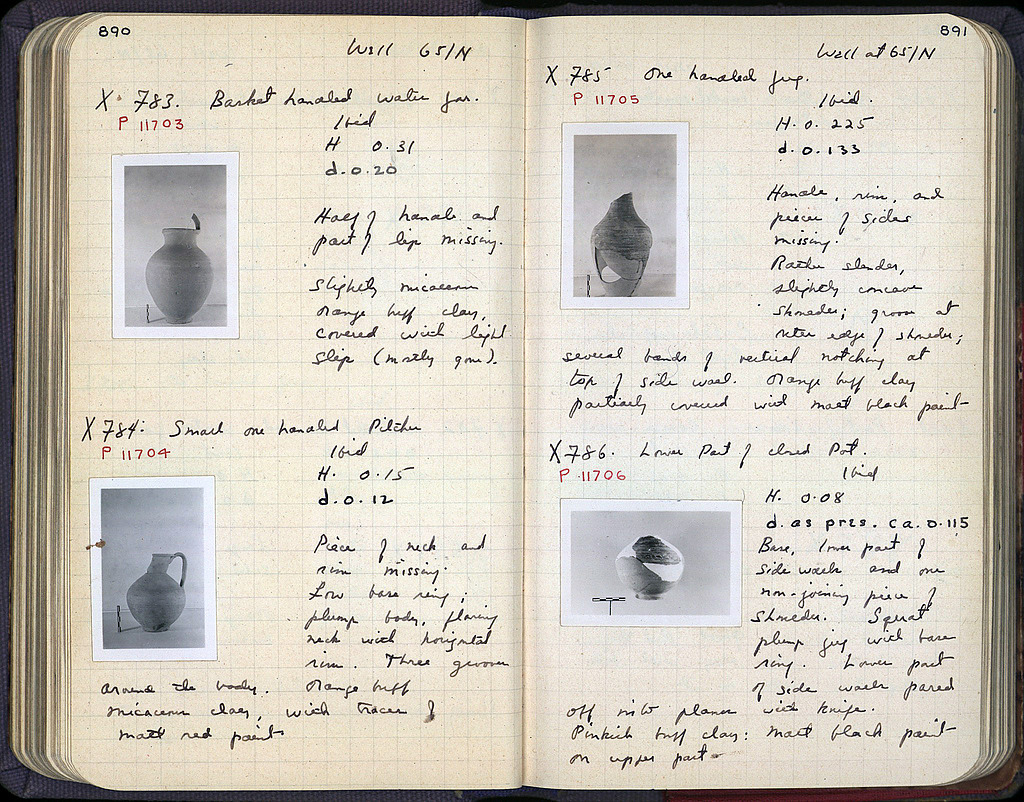 890
Well 65/N
X 783. Basket handled water jar.
P 11703
Ibid
H 0.31
d. 0.20
Half of handle and
part of lip missing.
Slightly micaceous
orange buff clay,
covered with light
slip (mostly gone).
X 784: Small one handled Pitcher
P 11704
Ibid
H. 0.15
d. 0.12
Piece of neck and
rim missing.
Low base ring;
plump body, flaring
neck with horizontal
rim. Three grooves
around the body. Orange buff
micaceous clay, with traces of
matt red paint
891
Well at 65/N
X 785 One handled jug.
P 11705
Ibid.
H. 0.225
d. 0.133
Handle, rim, and
pieces of sides
missing.
Rather slender,
slightly concave
shoulder; groove at
outer edge of shoulder;
several bands of vertical notching at
top of side wall. Orange buff clay
partially covered with matt black paint
X 786. Lower Part of closed Pot.
P 11706
Ibid
H. 0.08
d. as pres. ca. 0.115
Base, lower part of
side walls and one
non-joining piece of
shoulder. Squat
plump jug with base
ring. Lower part
of side walls pared
off into planes with knife.
Pinkish buff clay: matt black paint
on upper part